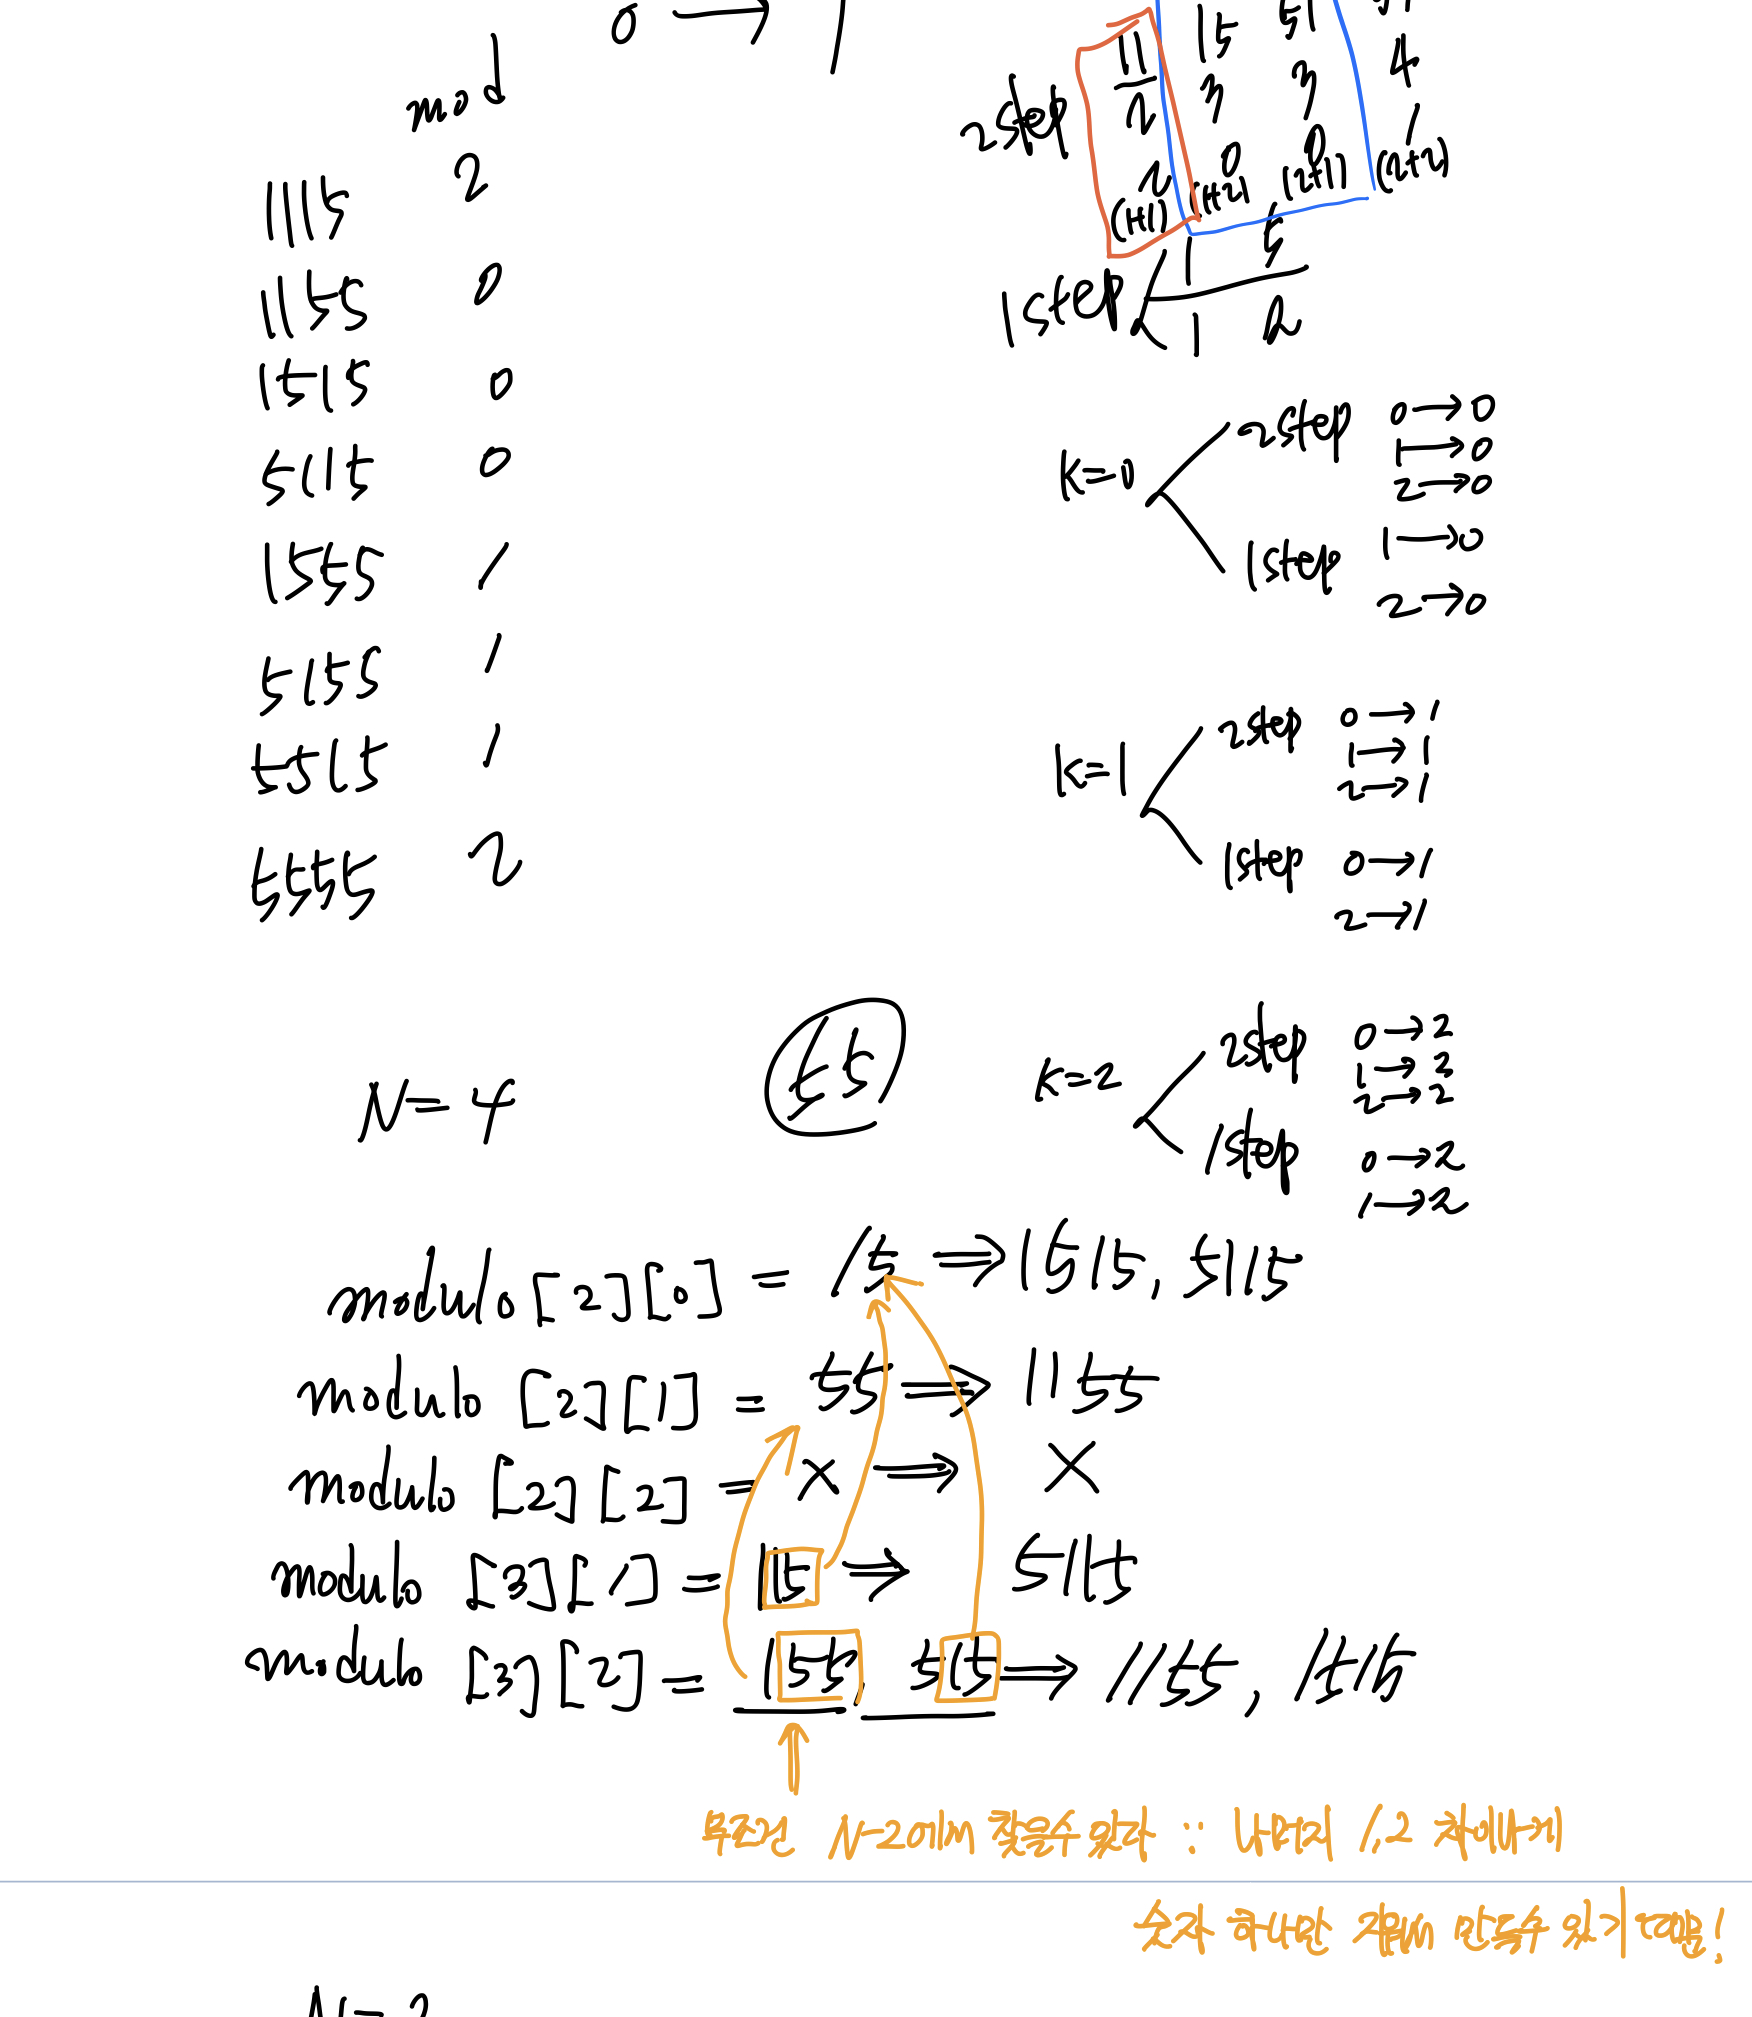 0 → 1
mod
1115 2
1155 0
1515 0
5115 0
1555 1
5155 1
5515 1
5555 2
15 51
2step 11 3 3 4
2 0 0 1
2 (1+2) (2+1) (2+2)
(1+1)
1step 1 5
1 2
K=0 2step 0→0
1→0
2→0
1step 1→0
2→0
K=1 2step 0→1
1→1
2→1
1step 0→1
2→1
K=2 2step 0→2
1→2
2→2
1step 0→2
1→2
N=4 55
modulo [2][0] = 15 ⇒ 1515, 5115
modulo [2][1] = 55 ⇒ 1155
modulo [2][2] = × ⇒ ×
modulo [3][1] = 115 ⇒ 5115
modulo [3][2] = 155, 515 ⇒ 1155, 1515
무조건 N-2에서 찾을수 있다 ∵ 나머지 1,2 차이나서
숫자 하나만 가지고 만들수 있기 때문!